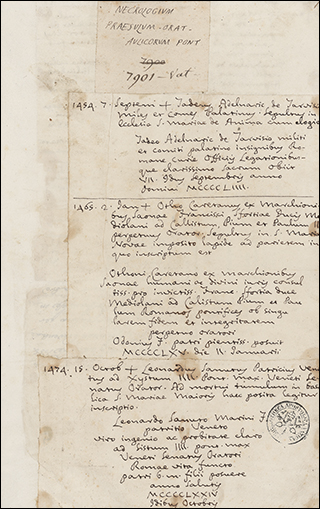 NECROLOGIUM
PRAESULUM - ORAT -
AULICORUM PONT
7900
7901 - Vat
1454. 7. Septem + Tadeus Adelmarie, de Tarvisio
Miles et Comes Palatinus. Sepultus in
Ecclesia S. Mariae de Anima cum elogio
Tadeo Adelmarie de Tarvisio militi
et comiti palatino insignibus Ro-
mane curie Officiis Legationibus-
que clarissimo sacrum Obiit
VII. Idus Septembris anno
Domini MCCCCLIIII.
1465. 2. Jan + Otho Caretanus ex Marchioni
bus Saonae Francisci Sfortiae Ducis Me
diolani ad Callistum, Pium et Paulum II
perpetuus Orator. Sepultus in S. Maria
Novae imposito lapide ad parietem in
quo inscriptum est
Othoni Caretano ex Marchionibus
Saonae humani ac divini iuris consul
tiss. pro invictiss. Franc. Sfortia duce
Mediolani ad Callistum Pium et Pau
lum Romanos pontifices ob singu
larem fidem et integritatem
perpetuo oratori
Odonus f. patri pientiss. posuit
MCCCCLXV die II Januarii.
1474. 15. Octob + Leonardus Sanutus Patricius Vene
tus ad Xystum IIII Pont. max. Veneti Se
natus Orator. Ad cuius tumulum in basi
lica S. Mariae Maioris haec posita legitur
inscriptio.
Leonardo Sanuto Marini F
patritio Veneto
viro ingenio ac probitate claro
ad Sistum IIII pont. max
Veneti Senatus Oratori
Romae vita functo
patri b. m. filii posuere
anno Salutis
MCCCCLXXIV
Idibus Octobris